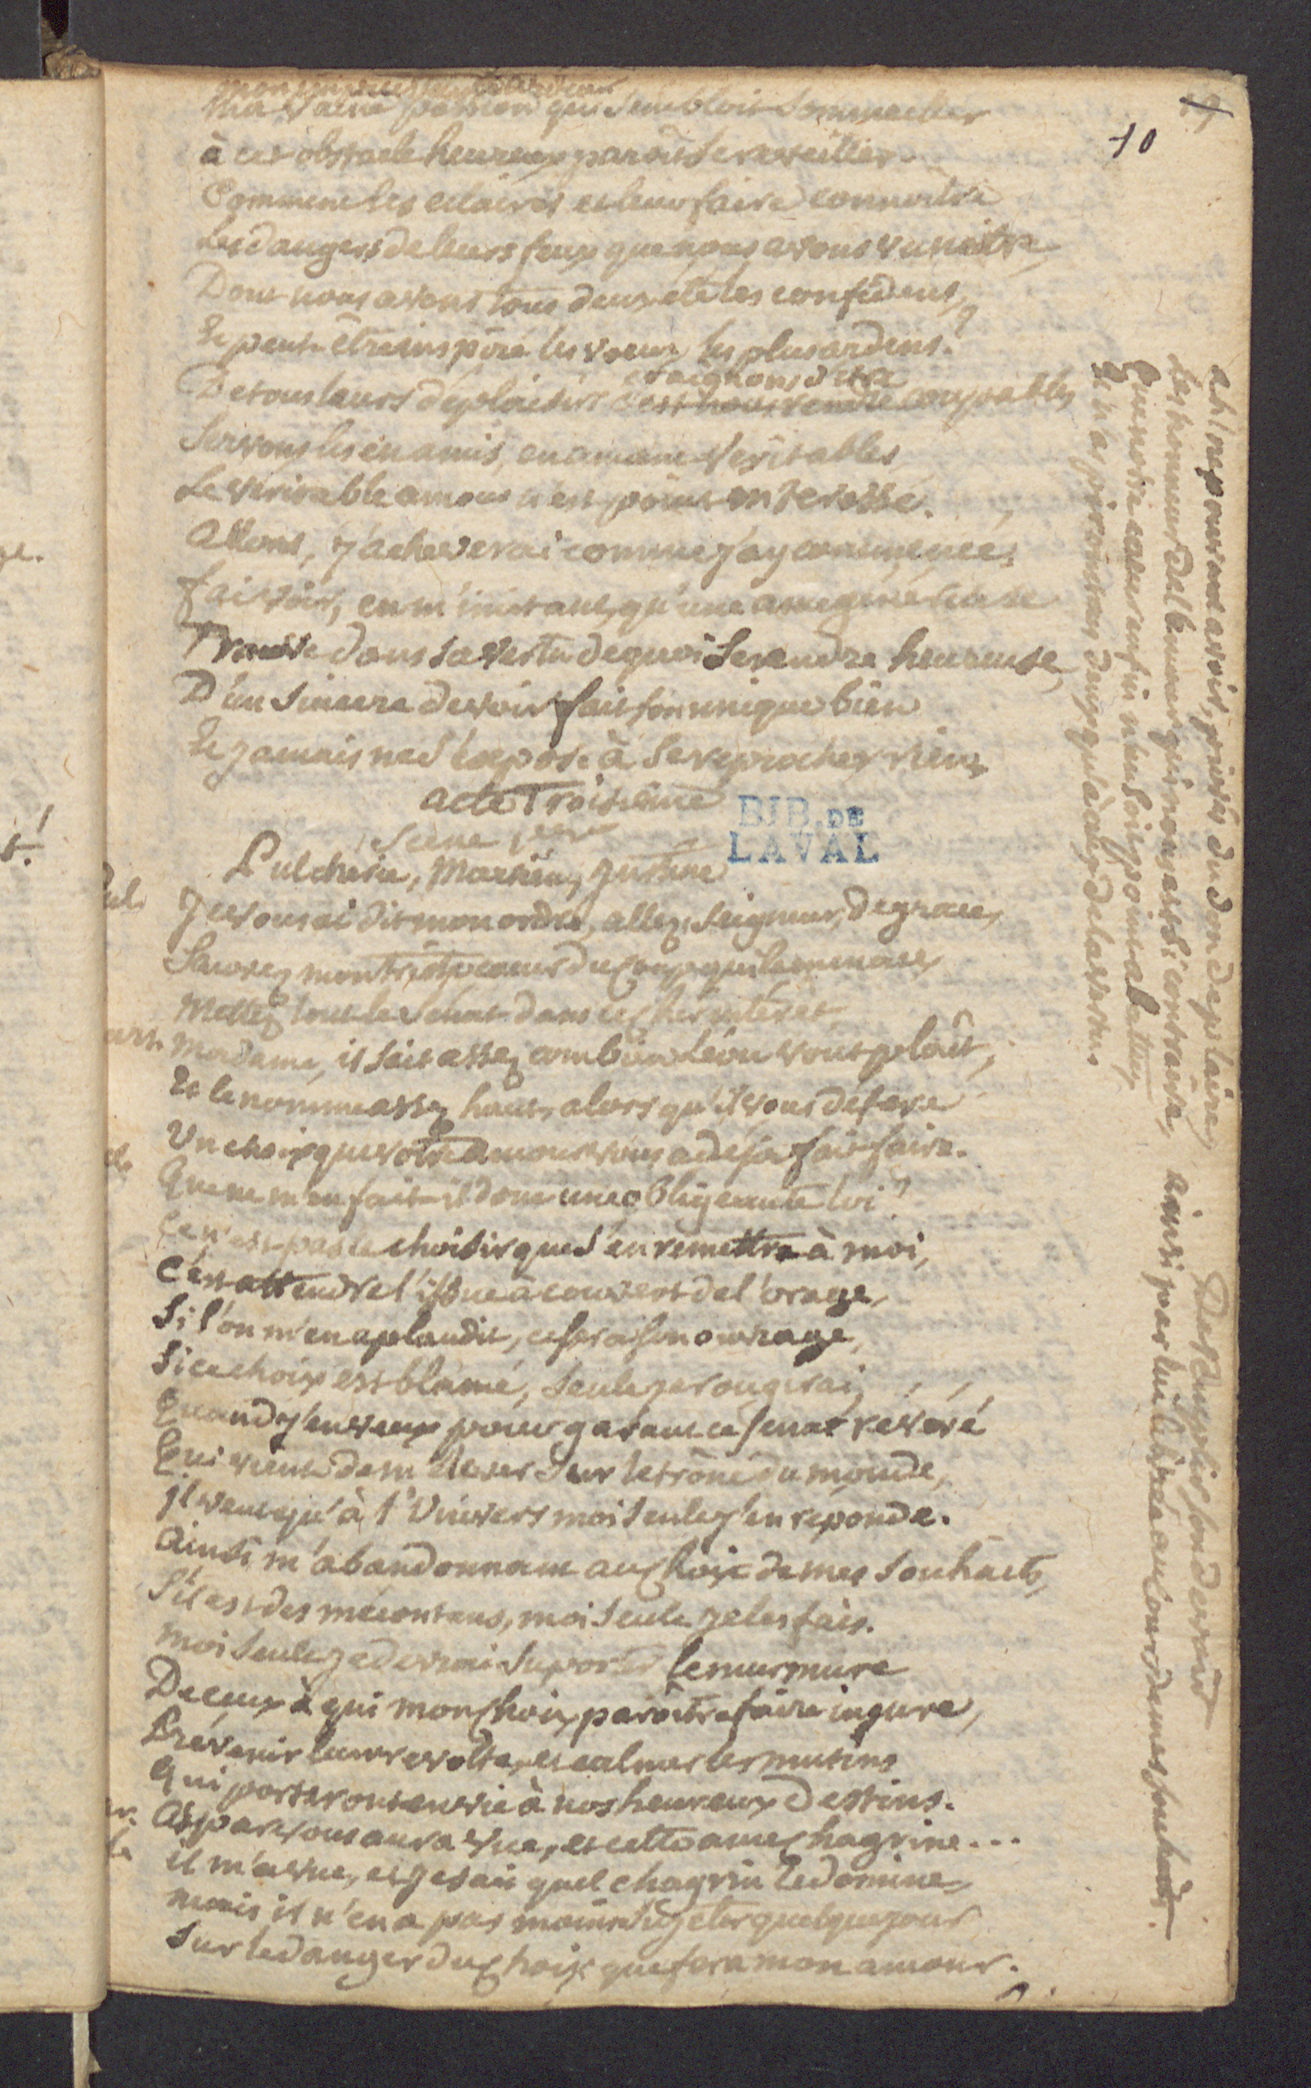 10
Ma vaine passion qui sembloit sommeiller
à cet obstacle heureux paroit se reveiller.
Comment les eclairer et leur faire connoitre
Les dangers de leurs feux que nous avons vu naitre,
Dont nous avons tous deux eté les confidens,
Et peut-être inspiré les voeux les plus ardens?
craignons d'etre
De tous leurs déplaisirs c'est nous rendre coupables
Servons les en amis, en amans véritables
Le véritable amour n'est point interessé.
Allons, j'acheverai comme j'ay commencé,
fai voir, en m'imitant, qu'une ame genéreuse
Trouve dans sa vertu de quoi se rendre heureuse,
D'un sincere devoir fait son unique bien
Et jamais ne s'expose à se reprocher rien.
acte Troisieme
Scene 1ere
Pulcherie, Martian, Justine
Pul.
Je vous ai dit mon ordre, allez, Seigneur, de grace,
Sauvez mon triste coeur du coup qui le menace,
Mettez tout le Sénat dans ce cher intérêt
Mart. Madame, il sait assez combien Léon vous plaît,
Et le nomme assez haut alors qu'il vous défere
Un choix que votre amour vous a déja fait faire.
Pul.
Que ne m'en fait-il donc une obligeante loi?
Ce n'est pas le choisir que s'en remettre à moi,
C'est attendre l'issue à couvert de l'orage,
Si l'on m'en aplaudit, ce sera son ouvrage,
Si ce choix est blâmé, seule je rougirai,
Quand j'en veux pour garant ce senat reveré
Qui vient de m'élever sur le trône du monde,
Il veut qu'à l'Univers moi seule j'en reponde.
Ainsi m'abandonnant au choix de mes souhaits,
S'il est des mécontens, moi seule je les fais.
Moi seule je devrai suporter le murmure
De ceux à qui mon choix paroîtra faire injure,
Prévenir leur revolte, et calmer les mutins
Qui porteront envie à nos heureux destins.
Mar. Aspar vous aura vue, et cette ame chagrine...
Pul.
il m'a vue, et je sai quel chagrin le domine,
mais il n'en a pas moins sujet quelque jour
Sur le danger du choix que fera mon amour.
BIB. DE
LAVAL
ah! ne pouvant avoir, privés du don de plaire,
Les honneurs de l'amour qui nous est si contraire,
Que notre coeur enfin n'en soit point abattu,
Et n'aspirons tous deux qu'à ceux de la vertu.